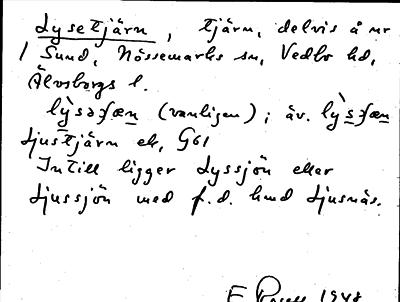 Lysetjärn, tjärn, delvis å nr
1 Sund, Nössemarks sn, Vedbo hd,
Älvsborgs l.
(vanligen); äv.
Ljustjärn ek. G61
Intill ligger Lyssjön eller
Ljussjön med f.d. hmd Ljusnäs.
1948